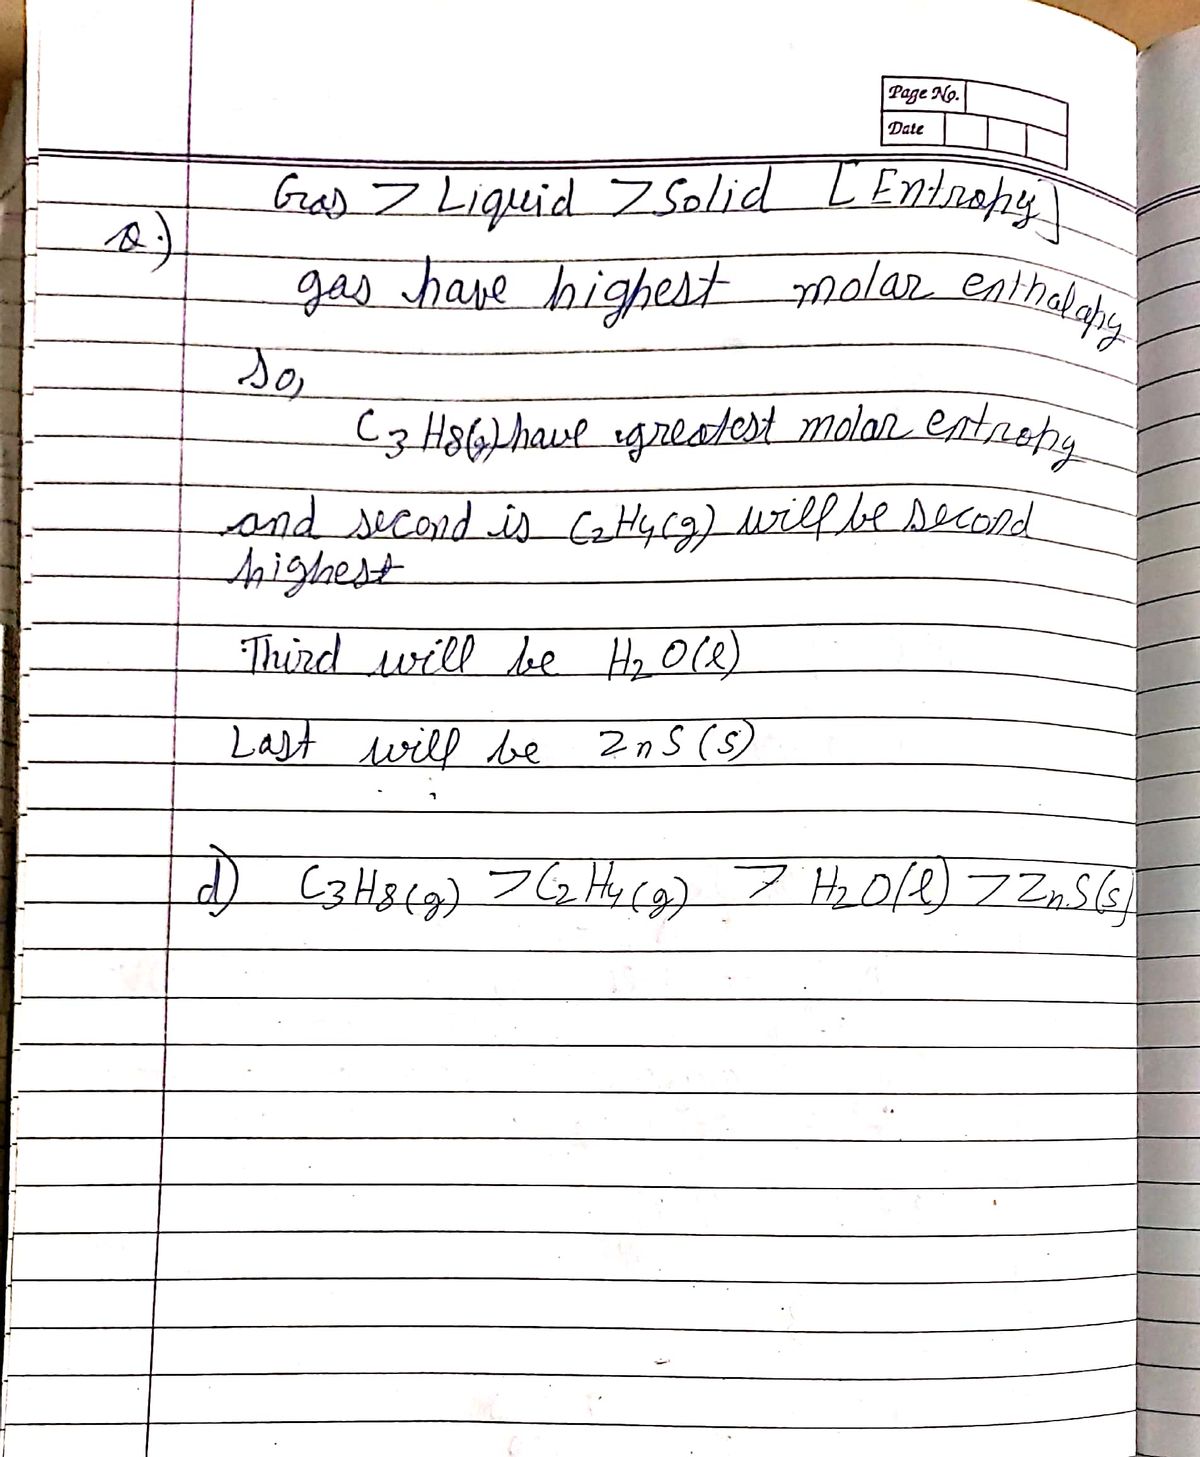 Page No.
Date
Gas > Liquid > Solid [Entropy]
Q.)
gas have highest molar enthalapy
So,
C3H8(g) have greatest molar entropy
and second is C2H4(g) will be second
highest
Third will be H2O(l)
Last will be ZnS(s)
d) C3H8(g) > C2H4(g) > H2O(l) > ZnS(s)